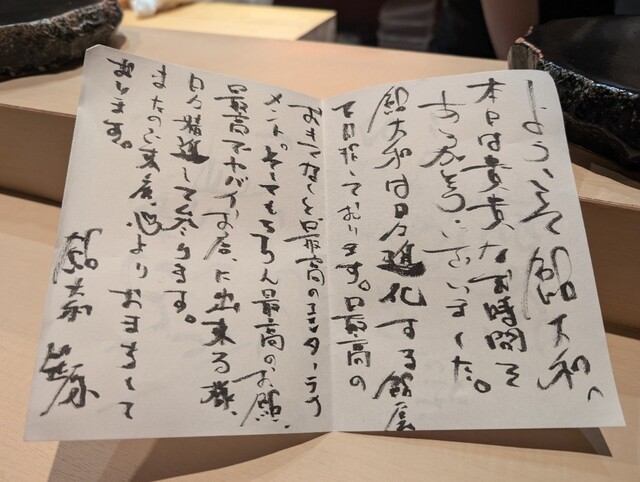 ようこそ 鮨大和へ
本日は貴重なお時間を
ありがとうございました。
鮨大和は日々進化する鮨屋
を目指しております。日最高の
おもてなしと日最高のエンターテイ
メント。そしてもちろん最高のお鮨、
最高でヤバイお店に出来る様、
日々精進して参ります。
またのご来店心よりおまちして
おります。
鮨大和